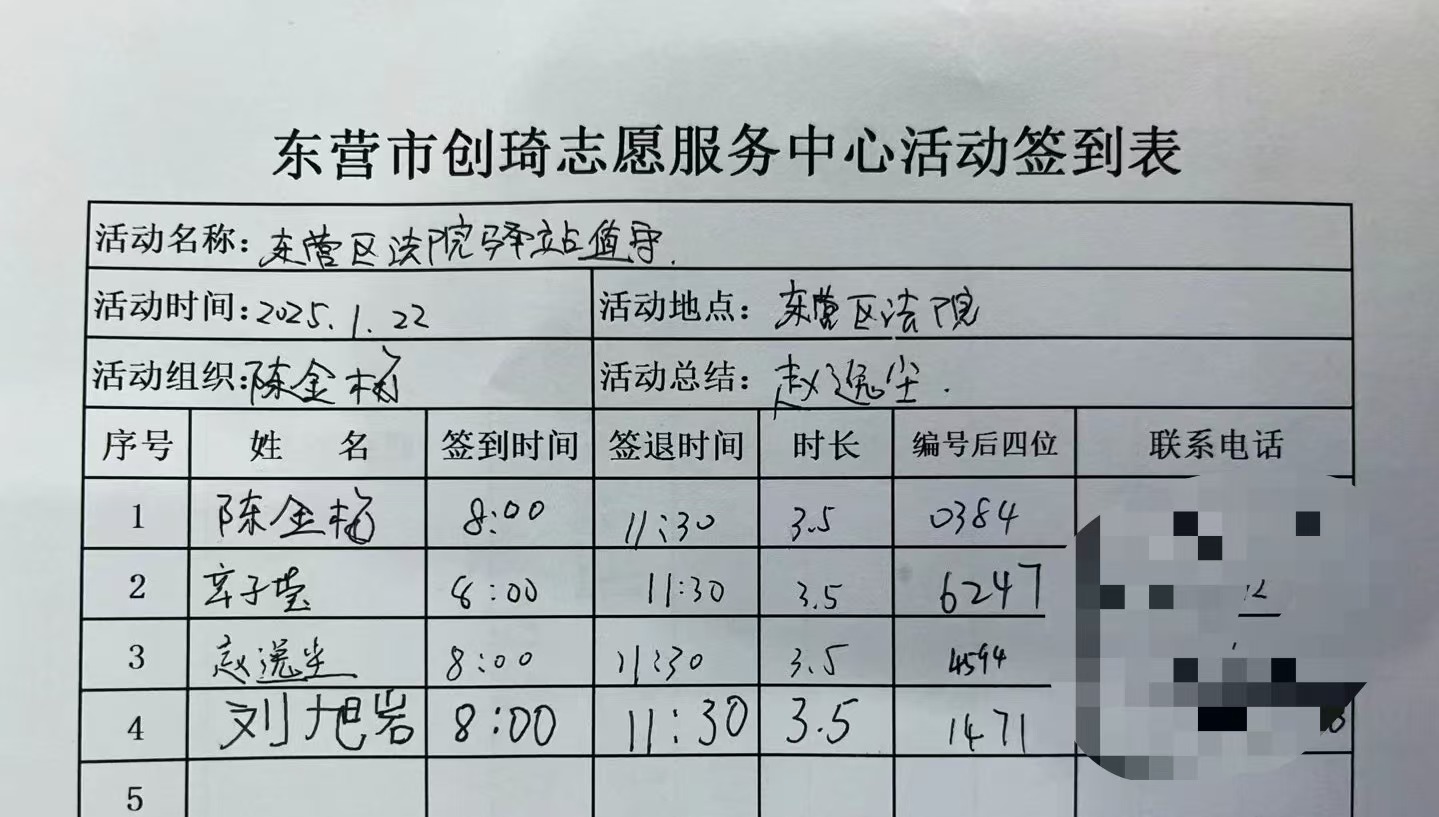 东营市创琦志愿服务中心活动签到表
活动名称：东营区法院驿站值守.
活动时间：2025.1.22 活动地点：东营区法院
活动组织：陈金杨 活动总结：赵逸尘.
序号 姓 名 签到时间 签退时间 时长 编号后四位 联系电话
1 陈金杨 8:00 11:30 3.5 0384
2 辛子莹 8:00 11:30 3.5 6247
3 赵逸尘 8:00 11:30 3.5 4594
4 刘旭岩 8:00 11:30 3.5 1471
5